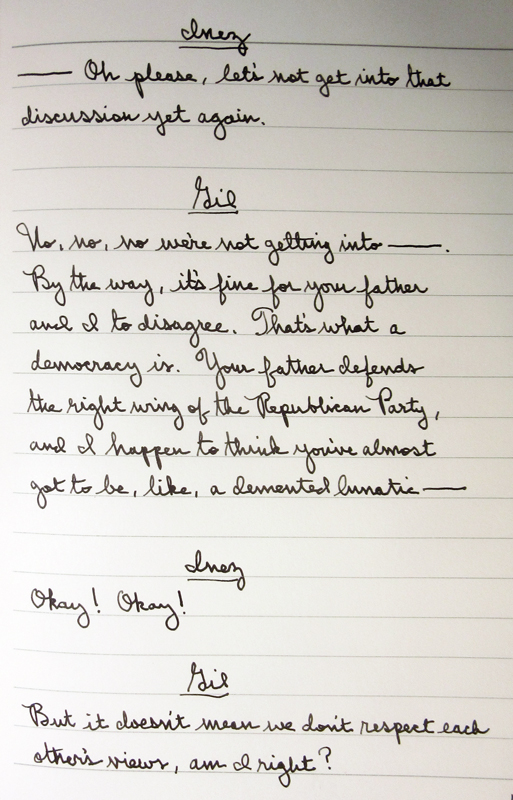 Inez
— Oh please, let's not get into that
discussion yet again.
Gil
No, no, no we're not getting into —.
By the way, it's fine for your father
and I to disagree. That's what a
democracy is. Your father defends
the right wing of the Republican Party,
and I happen to think you've almost
got to be, like, a demented lunatic —
Inez
Okay! Okay!
Gil
But it doesn't mean we don't respect each
other's views, am I right?